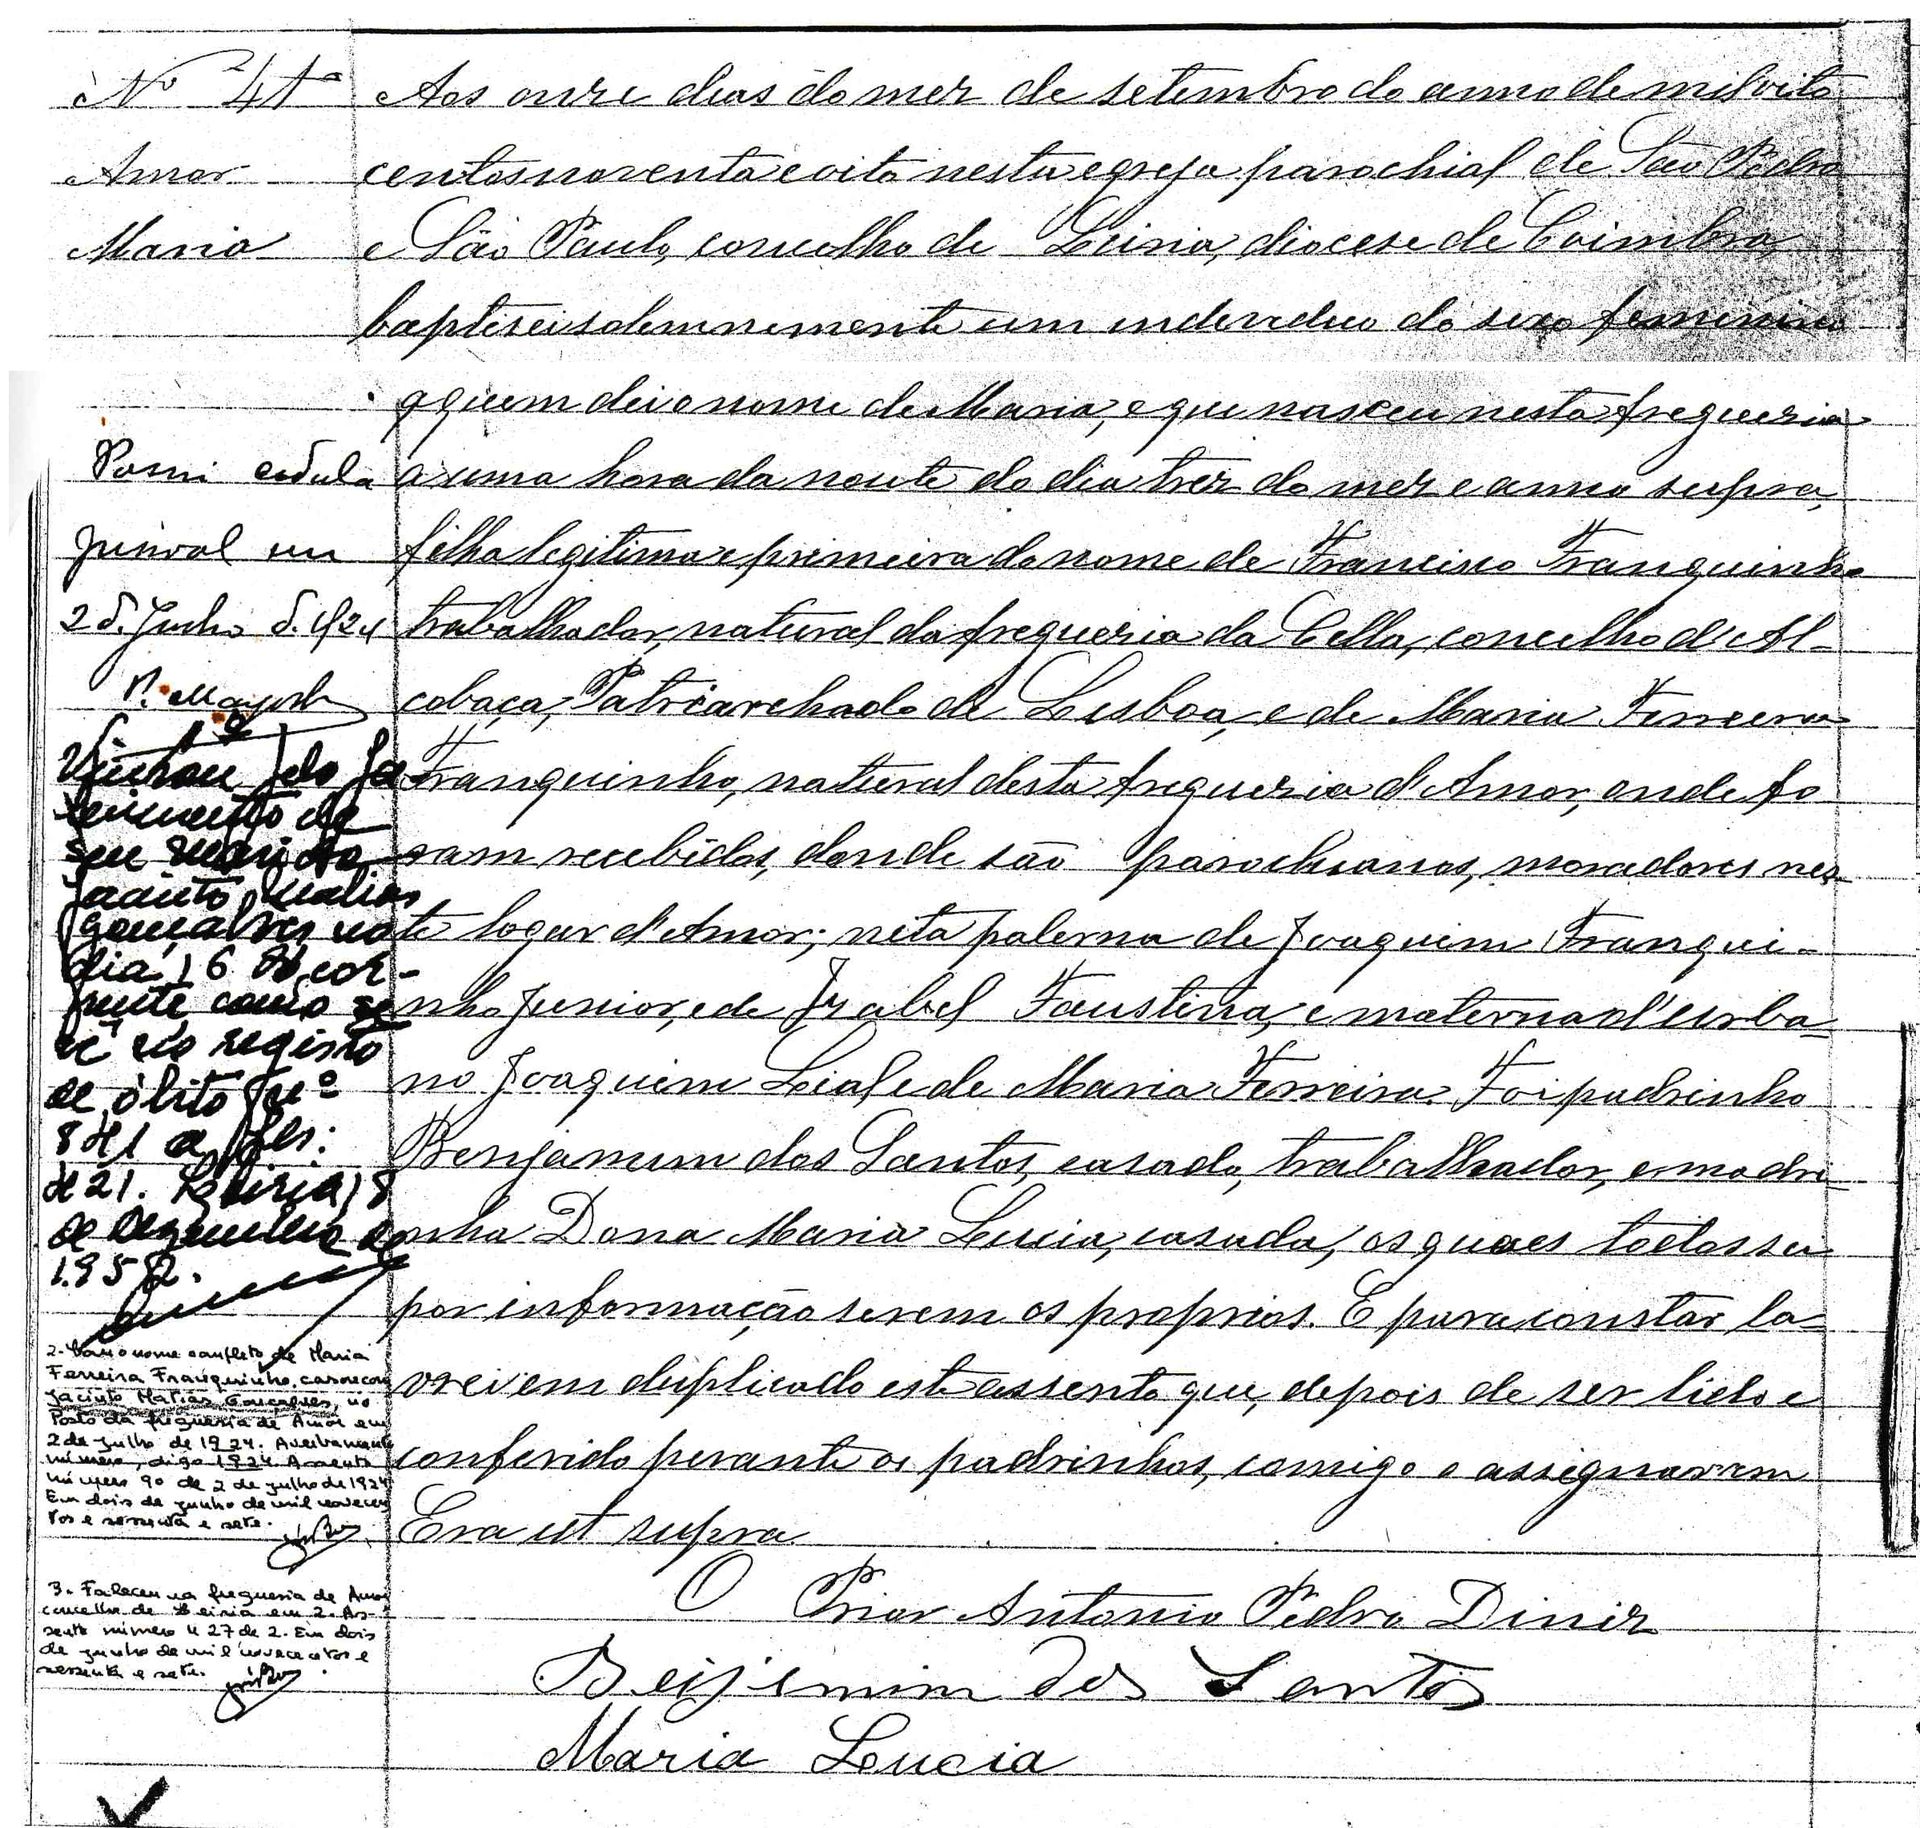 Nº 41
Amor
Maria
Aos onze dias do mez de setembro do anno de mil oito
centos noventa e oito nesta egreja parochial de São Pedro
e São Paulo, concelho de Leiria, diocese de Coimbra,
baptisei solemnemente um individuo do sexo feminino
a quem dei o nome de Maria, e que nasceu nesta freguezia
a uma hora da noute do dia trez do mez e anno supra,
filha legitima e primeira do nome de Francisco Franquinho
trabalhador, natural da freguezia da Cella, concelho d'Al-
cobaça, Patriarchado de Lisboa, e de Maria Ferreira
Franquinho, natural desta freguezia d'Amor, onde fo
ram recebidos, donde são parochianos, moradores nes-
te logar d'Amor; neta paterna de Joaquim Franqui-
nho Junior, e de Izabel Faustina, e materna d'Urba-
no Joaquim Leal e de Maria Ferreira. Foi padrinho
Benjamim dos Santos, casado, trabalhador, e madri-
nha Dona Maria Lucia, casada, os quaes todos sei
por informação serem os proprios. E para constar la-
vrei em duplicado este assento que, depois de ser lido e
conferido perante os padrinhos, comigo o assignaram
Era ut supra
O Prior Antonio Pedro Diniz
Beijemim dos Santos
Maria Lucia
Passei cedula
em
2 d. Julho d. 1924
Nº 1º
Viuvou pelo fa
lecimento de
seu marido
Jacinto Matias
Gonçalves no
dia 16 do cor-
rente como se
vê no registo
de óbito nº
841 a fls.
421. Leiria, 18
de Dezembro de
195
2- Com o nome completo de Maria
Ferreira Franquinho, casou com
Jacinto Matias Gonçalves, no
Posto da freguesia de Amor em
2 de Julho de 1924. Averbamento
número, digo 1924 Assento
número 90 de 2 de julho de 1924
Em dois de junho de mil novecen
tos e sessenta e sete.
3- Faleceu na freguesia de Amor
concelho de Leiria em 2. As-
sento número 427 de 2. Em dois
de junho de mil novecentos e
sessenta e sete.